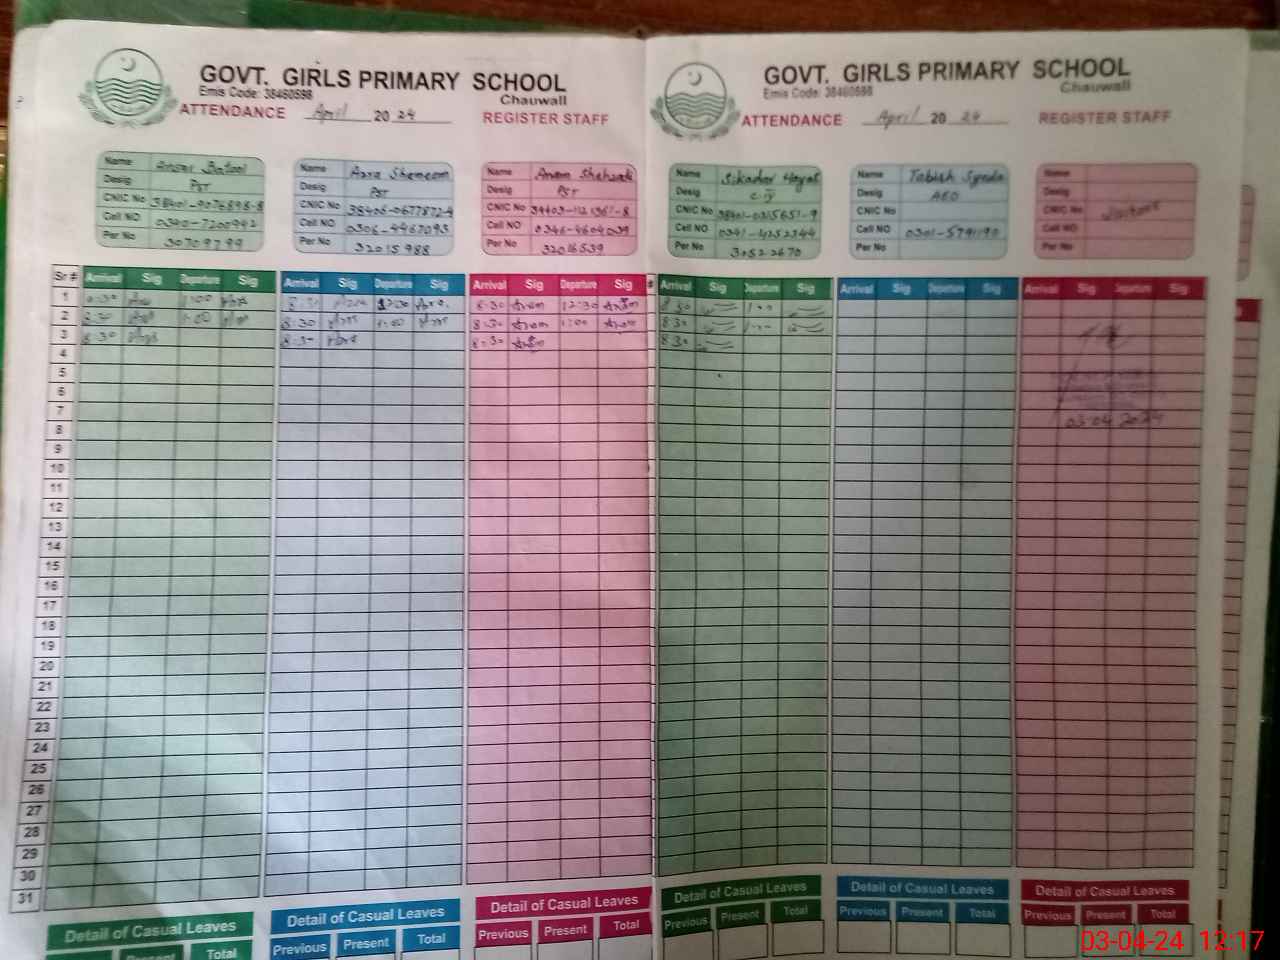 GOVT. GIRLS PRIMARY SCHOOL
Emis Code: 38460598
Chauwall
ATTENDANCE April 2024 REGISTER STAFF
Name
Desig PST
CNIC No
Cell NO 0340-7200942
Per No 30709799
Name Azra Shameem
Desig PST
CNIC No 38406-0677872-4
Cell NO 0306-4467093
Per No 32015988
Name Anam Shehzadi
Desig PST
CNIC No 34403-1121361-8
Cell NO 0346-4604039
Per No 32016539
Sr # Arrival Sig Departure Sig Arrival Sig Departure Sig Arrival Sig Departure Sig
1 8:30 1:00 8:30 12:30 8:30 Anam 12:30 Anam
2 8:30 1:00 8:30 1:00 8:30 Anam 1:00 Anam
3 8:30 8:30 8:30 Anam
4
5
6
7
8
9
10
11
12
13
14
15
16
17
18
19
20
21
22
23
24
25
26
27
28
29
30
31
Detail of Casual Leaves Detail of Casual Leaves Detail of Casual Leaves
Present Total Previous Present Total Previous Present Total
GOVT. GIRLS PRIMARY SCHOOL
Emis Code: 38460598
Chauwall
ATTENDANCE April 2024 REGISTER STAFF
Name Sikander Hayat
Desig C-IV
CNIC No 38401-0315651-9
Cell NO 0341-4252344
Per No 30522670
Name Tabish Syeda
Desig AEO
CNIC No
Cell NO 0301-5791190
Per No
Name
Desig
CNIC No Visitors
Cell NO
Per No
# Arrival Sig Departure Sig Arrival Sig Departure Sig Arrival Sig Departure Sig
8:30 1:00
8:30 1:00
8:30
03-04-2024
Detail of Casual Leaves Detail of Casual Leaves Detail of Casual Leaves
Previous Present Total Previous Present Total Previous Present Total
03-04-24 12:17